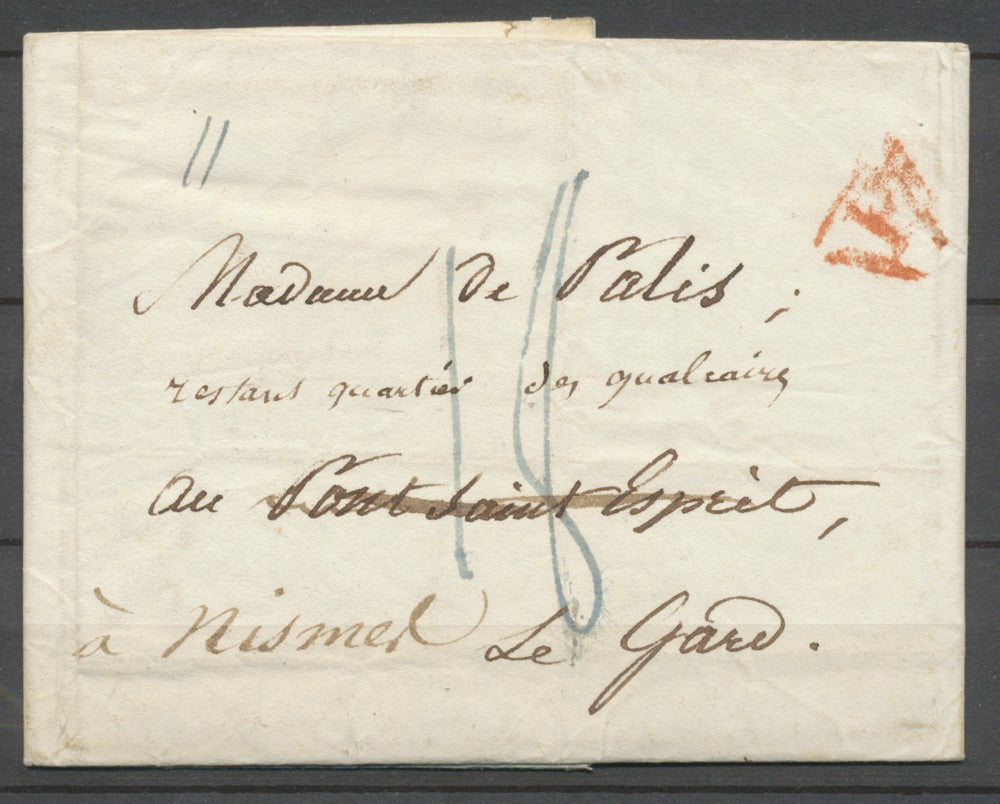 11
Madame de Palis,
restant quartier des
18
au Pont Saint Esprit,
à Nismes Le Gard.